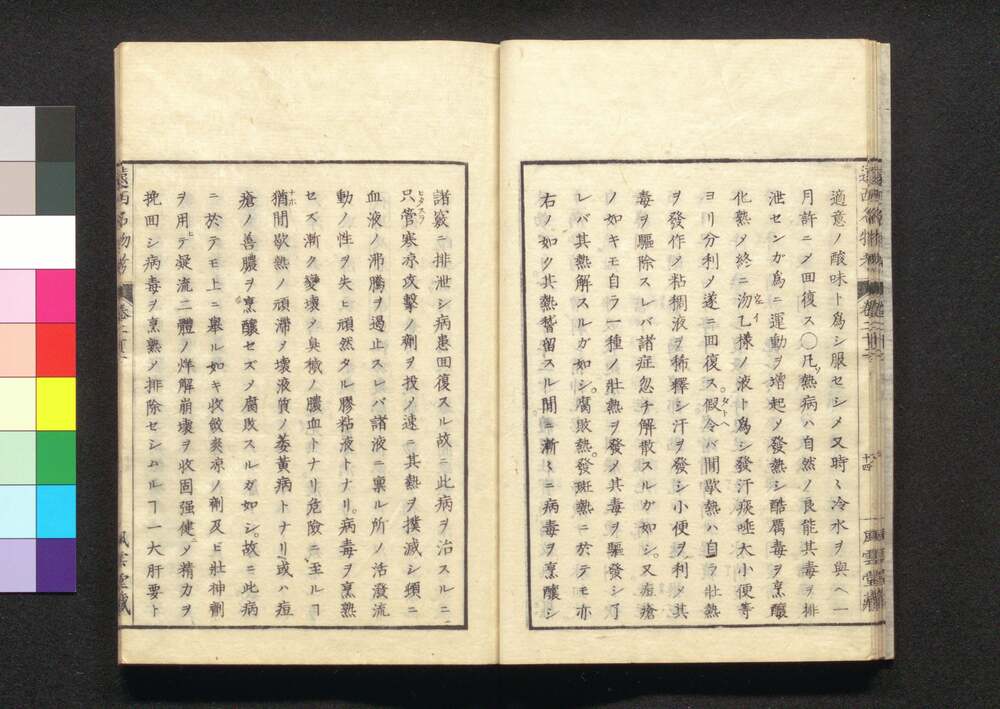 適意ノ酸味ト爲シ服セシメ又時々冷水ヲ與ヘ一
月許ニ〆回復ス〇凡熱病ハ自然ノ良能其毒ヲ排
泄センガ爲ニ運動ヲ增起〆發熱シ酷厲毒ヲ烹釀
化熟〆終ニ汤乙様ノ液ト爲シ發汗痰唾大小便等
ヨリ分利〆遂ニ回復ス假令バ間歇熱ハ自ラ壯熱
ヲ發作〆粘稠液ヲ稀釋シ汗ヲ發シ小便ヲ利〆其
毒ヲ驅除スレバ諸症忽チ解散スルガ如シ又痘瘡
ノ如キモ自ラ一種ノ壯熱ヲ發〆其毒ヲ驅發シ了
レバ其熱解スルガ如シ腐敗熱發斑熱ニ於テモ亦
右ノ如ク其熱稽留スル間ニ漸々ニ病毒ヲ烹釀シ
諸竅ニ排泄シ病患回復スル故ニ此病ヲ治スルニ
只管寒凉攻擊ノ劑ヲ投〆速ニ其熱ヲ撲滅シ頻ニ
血液ノ沸騰ヲ遏止スレバ諸液ニ稟ル所ノ活潑流
動ノ性ヲ失ヒ頑然タル膠粘液トナリ病毒ヲ烹熟
セズ漸ク變壞〆臭檅ノ膿血トナリ危險ニ至ルヿ
猶間歇熱ノ頑滯〆壞液質ノ萎黃病トナリ或ハ痘
瘡ノ善膿ヲ烹釀セズ〆腐敗スルガ如シ故ニ此病
ニ於テモ上ニ舉ル如キ收斂爽凉ノ劑及ビ壯神劑
ヲ用テ凝流二體ノ烊解崩壞ヲ收固强健ニ〆精力ヲ
挽回シ病毒ヲ烹熟〆排除セシムルヿ一大肝要ト
遠西名物考
風雲堂藏